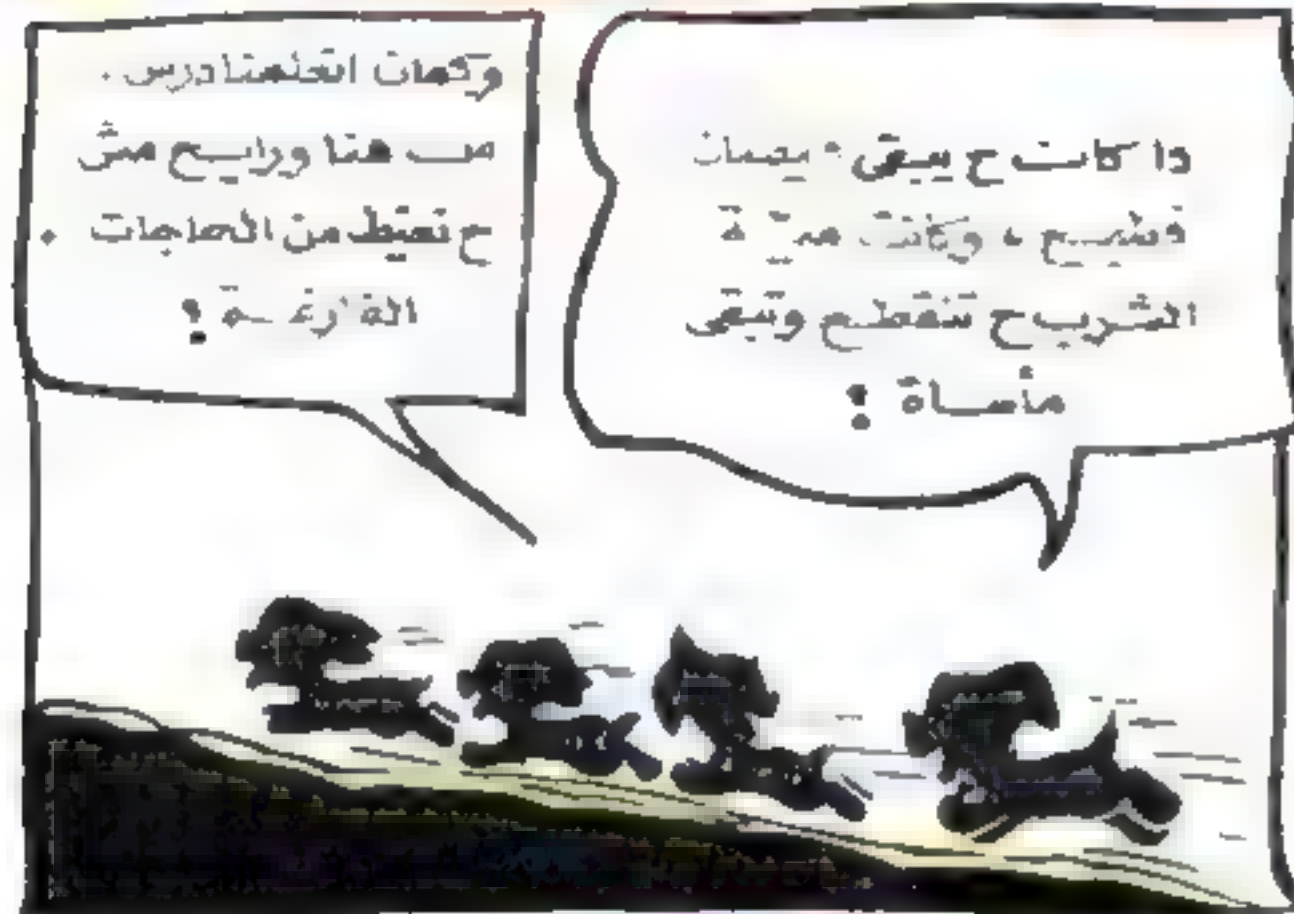 دا كان ح يبقى فيضان
فظيع ، وكانت ميّة
الشرب ح تنقطع وتبقى
مأساة !
وكمان اتعلمنا درس .
من هنا ورايح مش
ح نعيّط من الحاجات
الفارغة !